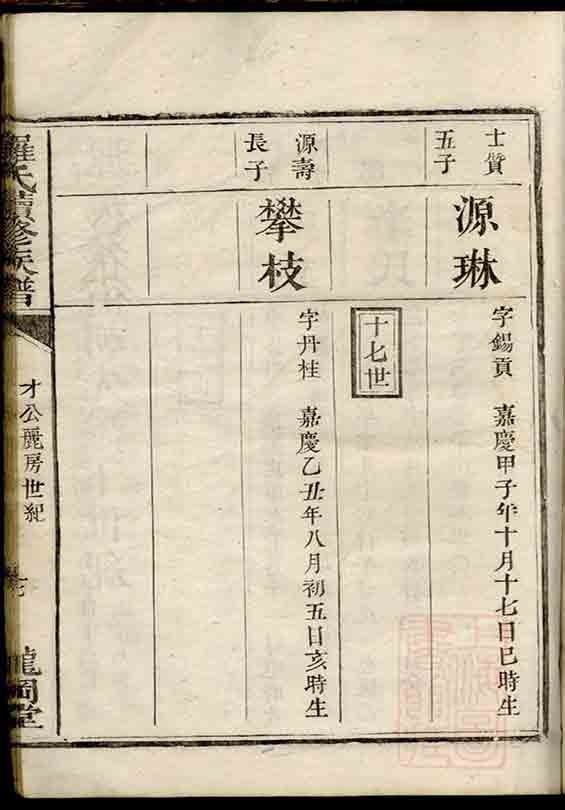 士贊
五子
源琳
字錫貢　嘉慶甲子年十月十七日巳時生
十七世
源壽
長子
攀枝
字丹桂　嘉慶乙丑年八月初五日亥時生
羅氏續修族譜
才公麗房世紀
龍岡堂